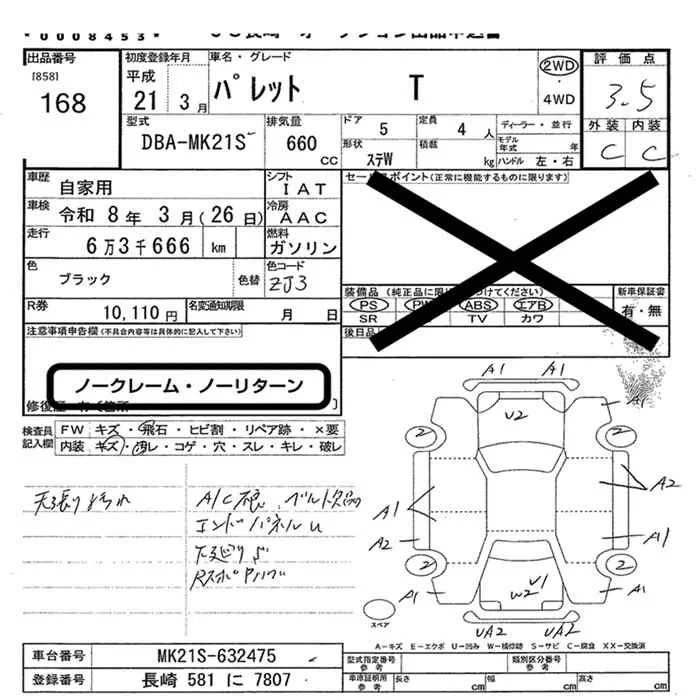 *0008453*
出品番号
[858]
168
初度登録年月
平成
21 3月
車名・グレード
パレット T
2WD
・
4WD
評価点
3.5
外装 内装
C C
型式
DBA-MK21S
排気量
660
CC
ドア
5
定員
4 人
ディーラー・並行
モデル年式 年
形状
ステW
積載
kg
ハンドル 左・右
車歴
自家用
シフト
IAT
車検
令和 8年 3月(26日)
冷房
AAC
走行
6万3千666 km
燃料
ガソリン
色
ブラック
色替
色コード
ZJ3
R券
10,110円
名変通知期限
月 日
注意事項申告欄(不具合内容等は具体的に記入して下さい)
ノークレーム・ノーリターン
(正常に機能するものに限ります)
装備品
PS
ABS
エアB
SR
TV
カワ
新車保証書
有・無
後日品
検査員
記入欄
FW キズ・飛石・ヒビ割・リペア跡・×要
内装 キズ・汚レ・コゲ・穴・スレ・キレ・破レ
天張り汚れ
エンドパネルU
A1 A1
U2
A1
2 2
A1
A2
A2
A1
2 2
A1
V1
W2
A1
UA2 UA2
スペア
A-キズ E-エクボ U-凹み W-補修跡 S-サビ C-腐食 XX-交換済
車台番号
MK21S-632475
登録番号
長崎 581 に 7807
型式指定番号
参考
類別区分番号
参考
車庫証明用
参考
長さ cm
幅 cm
高さ cm